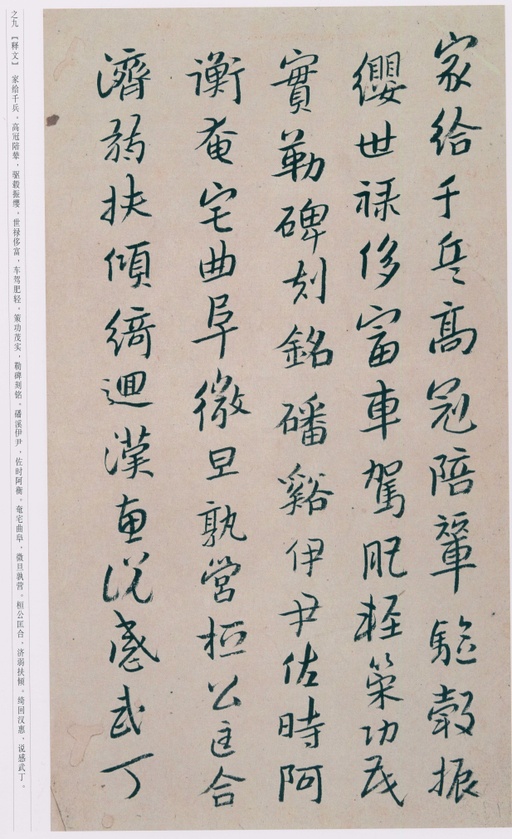 家給千兵高冠陪輦驅轂振
纓世祿侈富車駕肥輕策功茂
實勒碑刻銘磻谿伊尹佐時阿
衡奄宅曲阜微旦孰營桓公匡合
濟弱扶傾綺迴漢惠說感武丁
之九 【释文】 家给千兵，高冠陪辇，驱毂振缨。世禄侈富，车驾肥轻。策功茂实，勒碑刻铭。磻溪伊尹，佐时阿衡。奄宅曲阜，微旦孰营。桓公匡合，济弱扶倾。绮回汉惠，说感武丁。